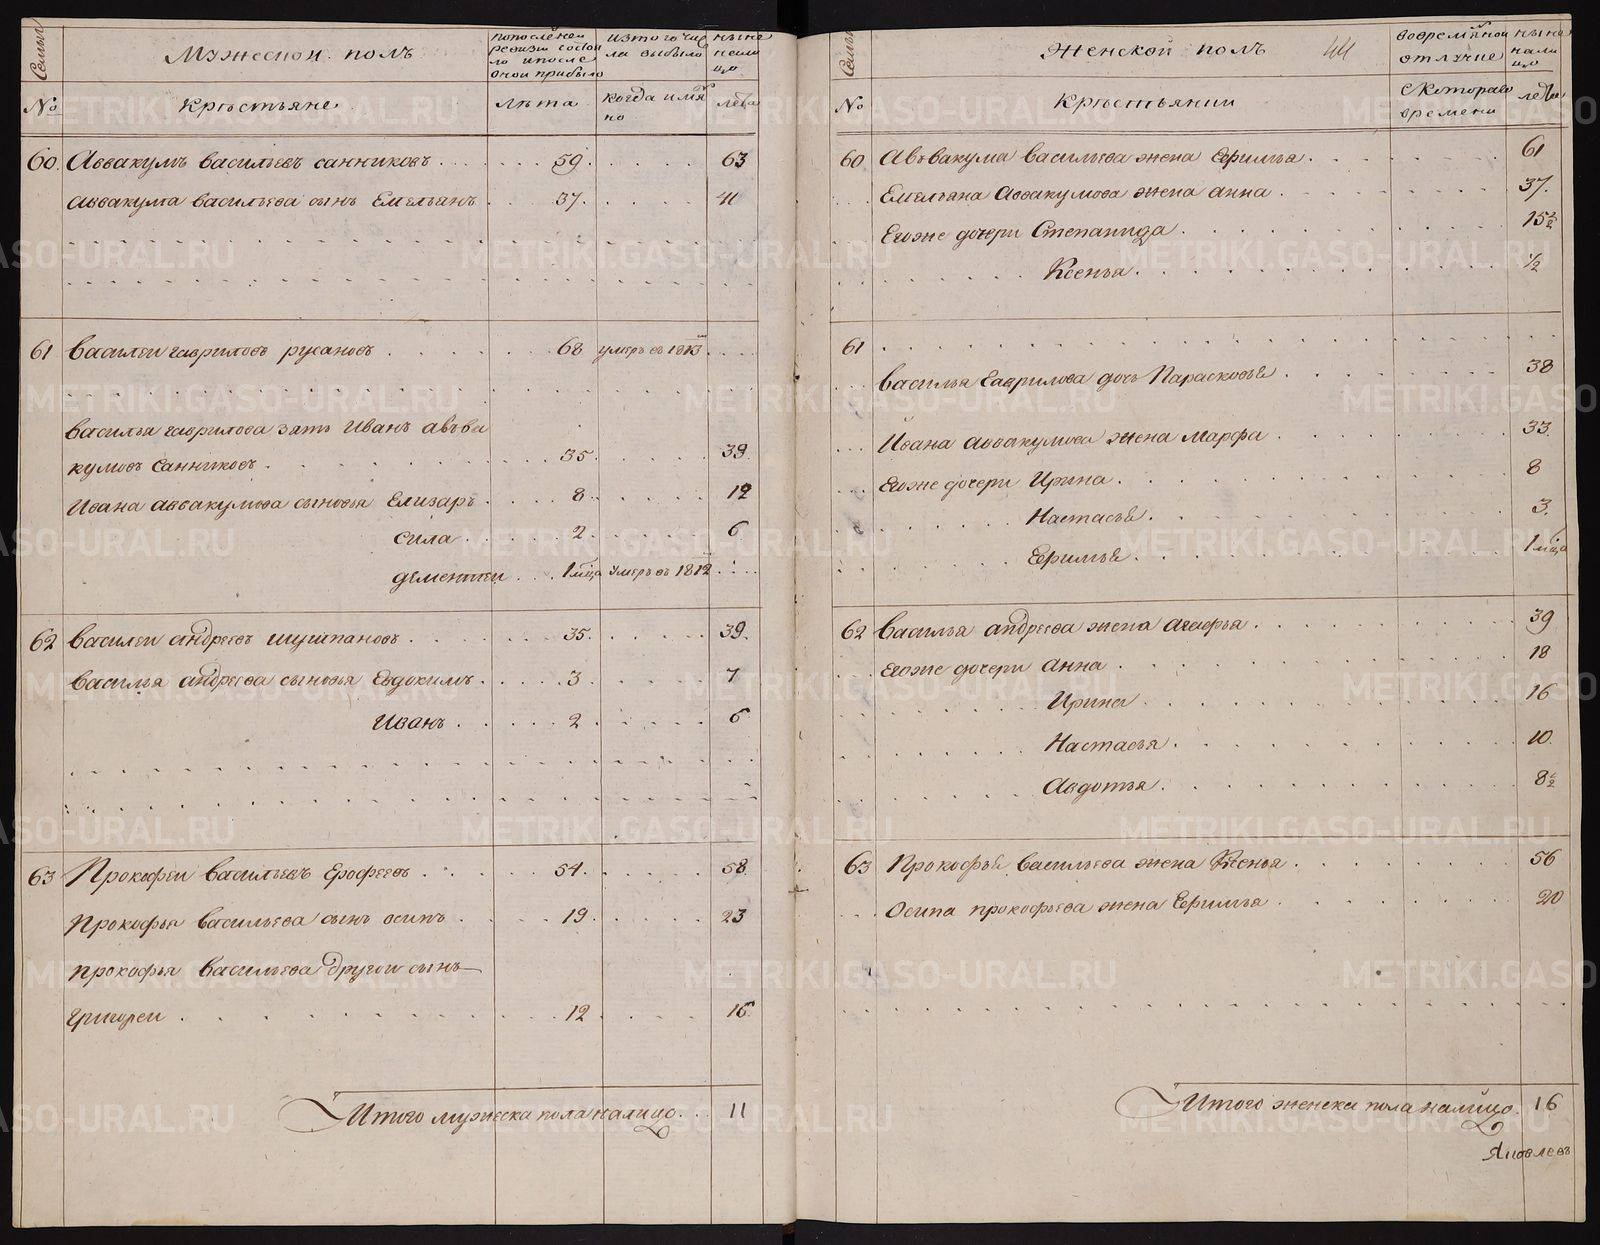 Семьи
Мужеской полъ
по последней ревизии состояло и после оной прибыло
из того числа выбыло
ныне на лицо
№
Крестьяне
лѣта
когда имянно
лета
60. Аввакумъ васильевъ санниковъ 59. 63
Аввакума васильева сынъ Емельянъ 37. 41
61 василеи гавриловъ русановъ 68 умеръ въ 1813
василья гаврилова зять Иванъ авъва
кумовъ санниковъ 35 39.
Ивана аввакумова сыновья Елизаръ 8 12
сила 2 6
дементеи 1 мца умеръ въ 1812
62 василеи андреевъ шушпановъ 35. 39.
василья андреева сыновья Евдокимъ 3 7
Иванъ 2 6
63 Прокофеи васильевъ Ерофеевъ 54. 58
Прокофья васильева сынъ осипъ 19. 23
прокофья васильева другои сынъ
григореи 12 16
Итого мужеска пола налицо 11
Семьи
Женской полъ
44
во временной отлучке
ныне на лицо
№
Крестьянии
с котораго времени
лета
60 Авъвакума васильева жена Ефимья 61
Емельяна Аввакумова жена анна 37.
Егоже дочери Степанида 15½
Ксенья ½
61
василья Гаврилова дочь Парасковья 38
Ивана аввакумова жена марфа 33.
Егоже дочери Ирина 8
Настасья 3.
Ефимья 1 мца
62 василья андреева жена агафья 39
Егоже дочери анна 18
Ирина 16
Настасья 10
Авдотья 8½
63 Прокофья васильева жена Ксенья 56
Осипа прокофьева жена Ефимья 20
Итого женска пола налицо 16
Яковлевъ
METRIKI.GASO-URAL.RU